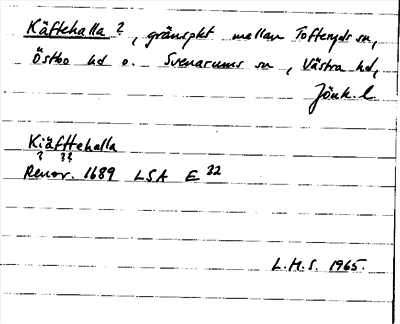 Käftehalla ?, gränspkt mellan Tofteryds sn,
Östbo hd o. Svenarums sn, Västra hd,
Jönk. l
Kiäfttehalla
? ??
Renov. 1689 LSA E 22
L.M.S. 1965.